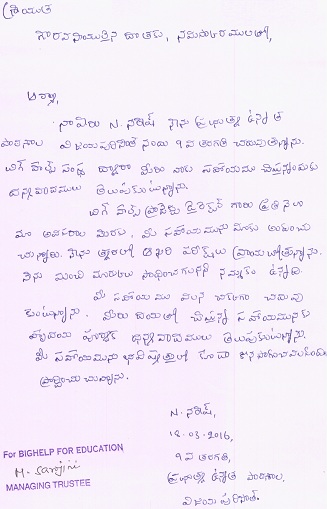 శ్రీయుత
గౌరవనీయులైన దాతకు, నమస్కారములతో,
నా పేరు N. నరేష్, నేను ప్రభుత్వ ఉన్నత
పాఠశాల విజయపురిసౌత్ నందు 9వ తరగతి చదువుతున్నాను.
బిగ్ హెల్ప్ సంస్థ ద్వారా మీరు నాకు సహాయము చేస్తున్నందుకు
ధన్యవాదములు తెలుపుకుంటున్నాను.
బిగ్ హెల్ప్ ప్రాజెక్టు డైరెక్టర్ గారు ప్రతినెలా
మా అవసరాల మేరకు, మీ సహాయమును మాకు అందించు
చున్నారు. నేను త్వరలో ఆఖరి పరీక్షలు వ్రాయబోతున్నాను.
నేను మంచి మార్కులు సాధించగలనని నమ్మకం ఉన్నది.
మీ సహాయము వలన బాగుగా చదువు
కుంటున్నాను. మీరు దయతో చేస్తున్న సహాయమునకు
హృదయ పూర్వక ధన్యవాదములు తెలుపుకుంటున్నాను.
మీ సహాయమును భవిష్యత్తులో కూడా కొనసాగించవలసిందిగా
ప్రార్థించుచున్నాను.
N. నరేష్,
18-03-2016,
9వ తరగతి,
ప్రభుత్వ ఉన్నత పాఠశాల,
విజయపురిసౌత్.
For BIGHELP FOR EDUCATION
M. Sarojini
MANAGING TRUSTEE